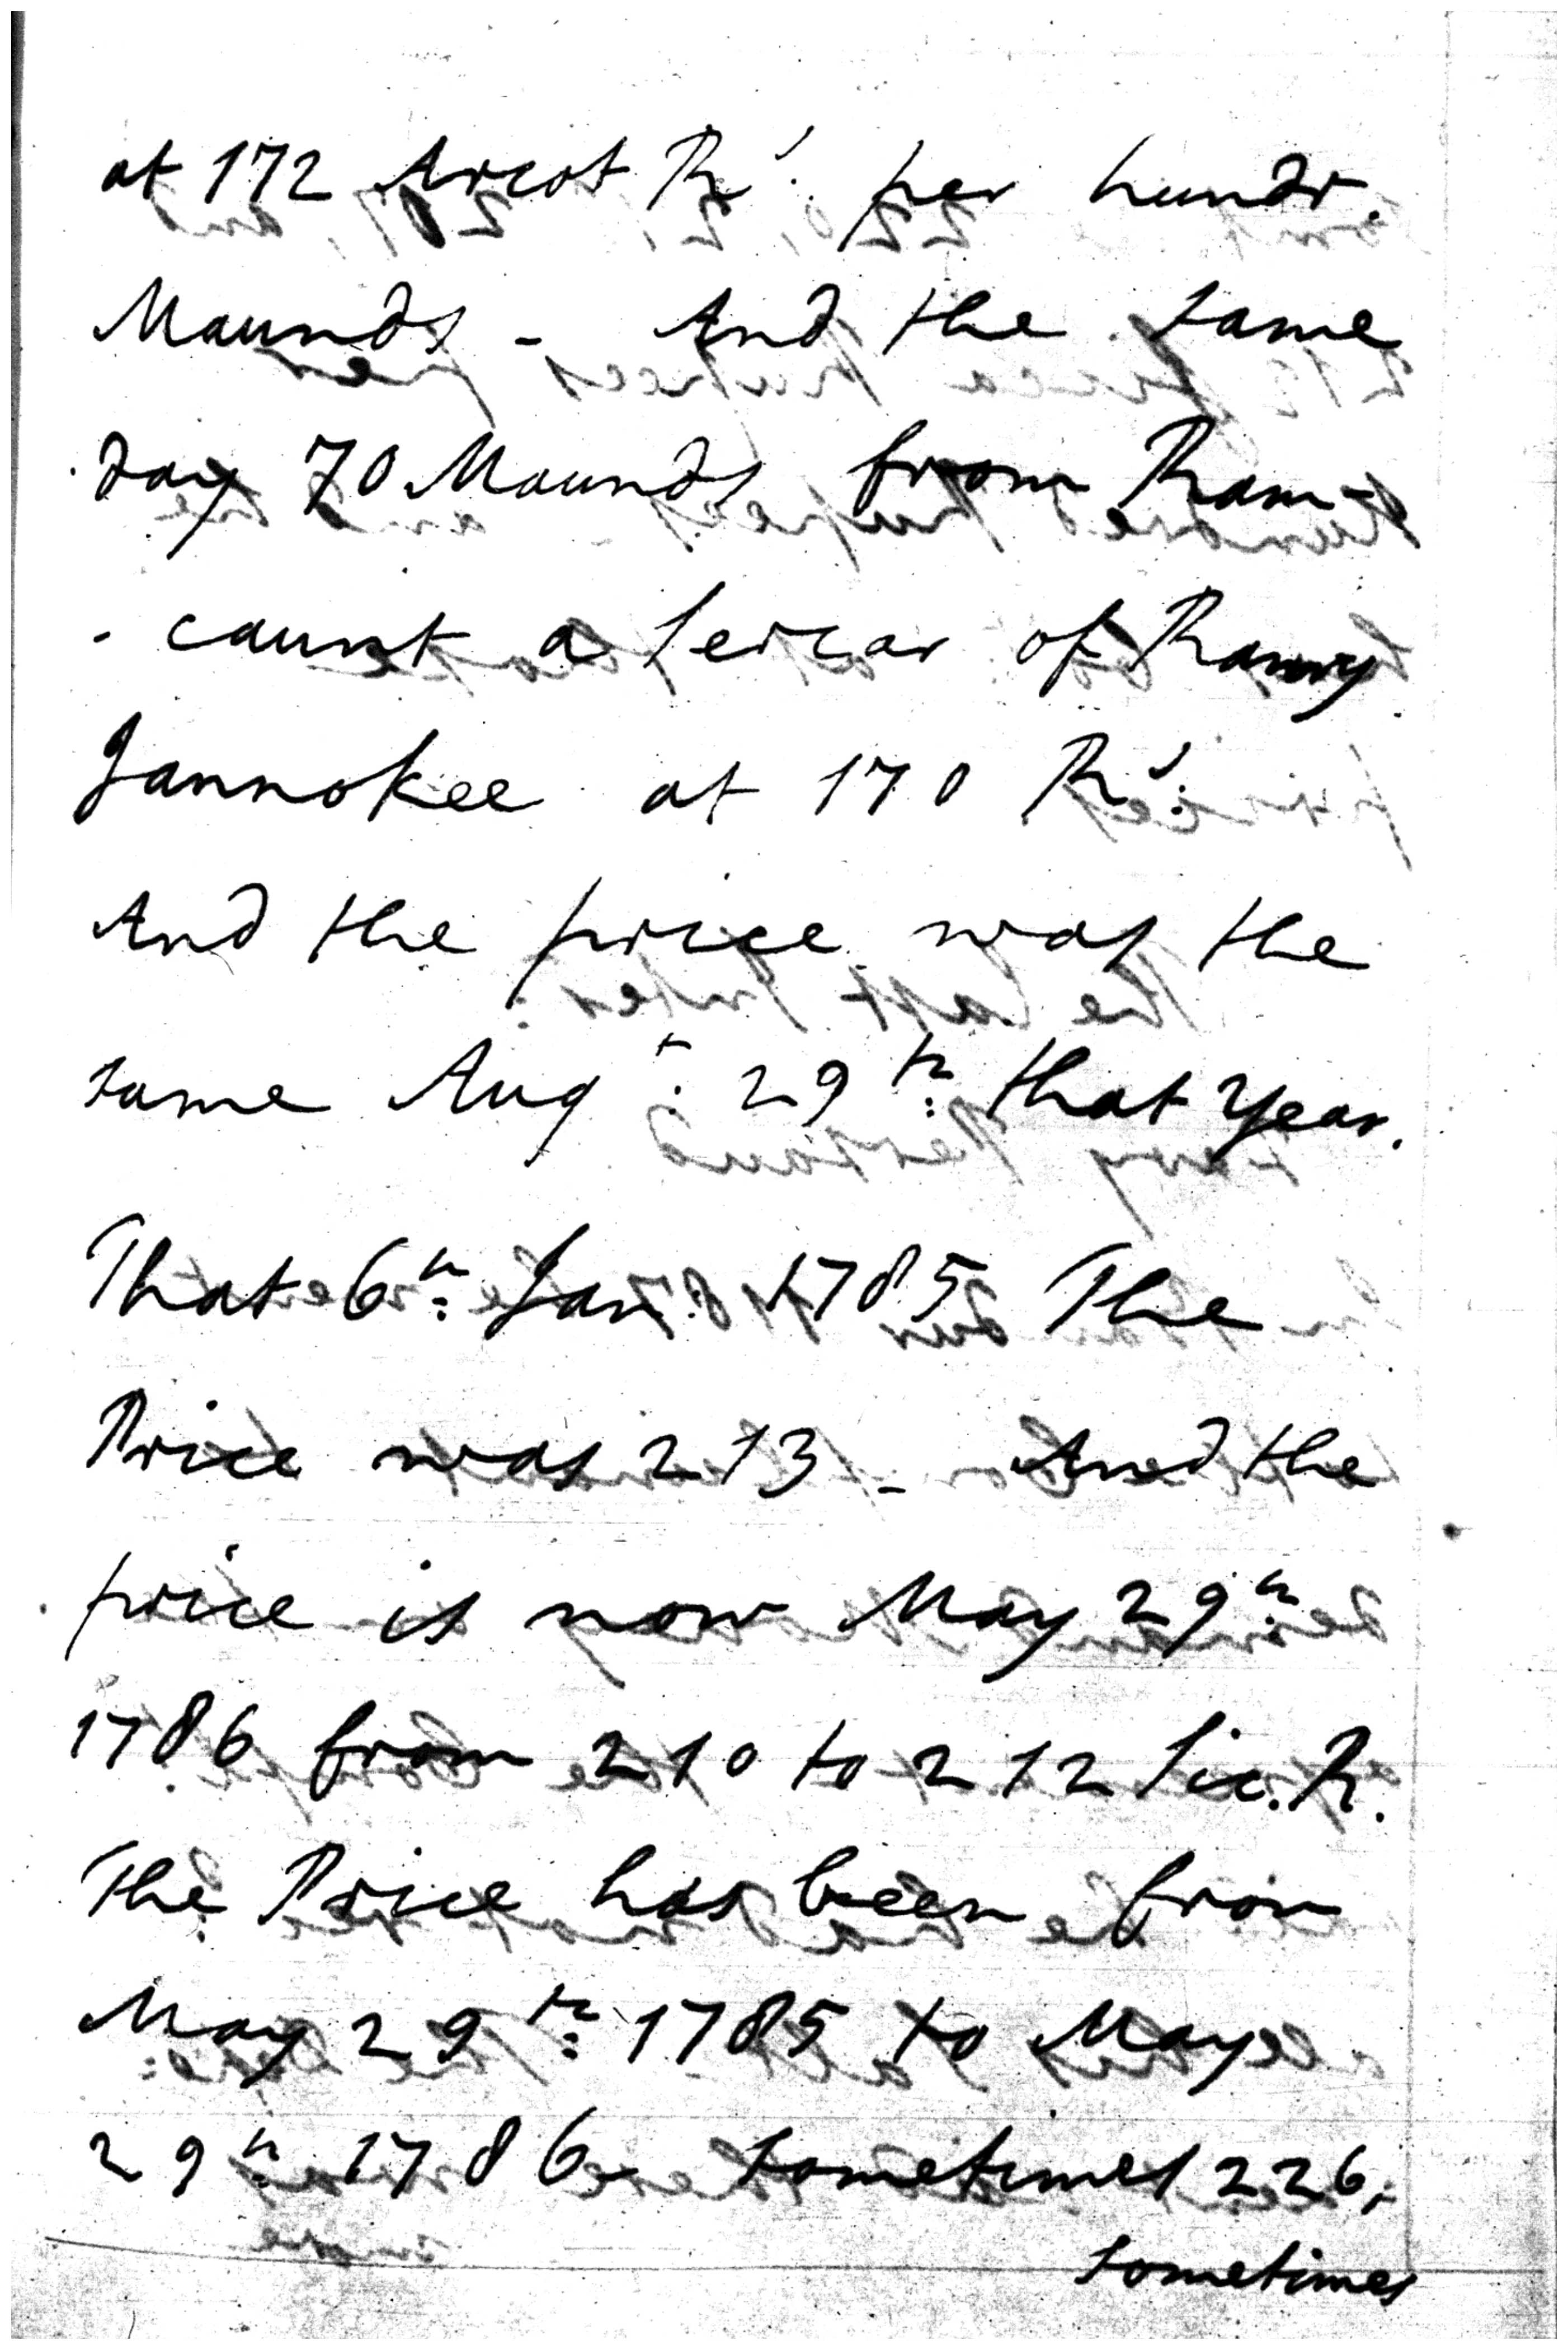 at 172 Arcot Rs. per hundr.
Maunds - And the same
day 70 Maunds from Ram-
- caunt a Sercar of Ranny
Jannokee at 170 Rs:
And the price was the
same Augt. 29th: that Year.
That 6th: Jany. 1785 The
Price was 213 - And the
price is now May 29th:
1786 from 210 to 212 Sic. R.
The Price has been from
May 29th: 1785 to May
29th: 1786 - sometimes 226,
sometimes